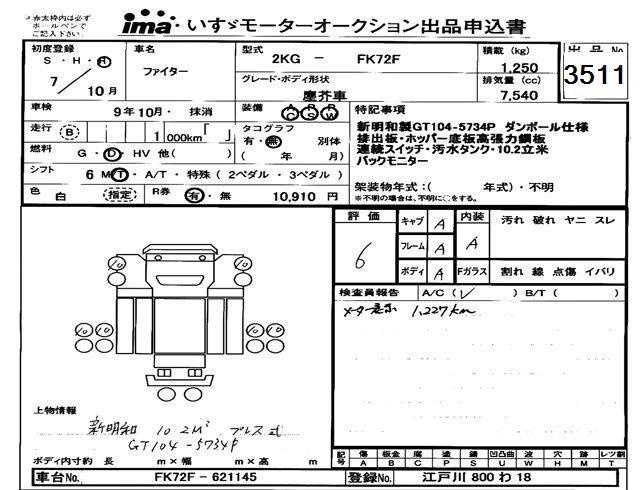 ※赤太枠内は必ず
ボールペンで
ご記入下さい。
ima いすゞモーターオークション出品申込書
初度登録
S・H・H
7 / 10月
車名
ファイター
型式
2KG － FK72F
グレード・ボディ形状
塵芥車
積載 (kg)
1,250
排気量 (cc)
7,540
出品No
3511
車検
9年10月・ 抹消
装備
AC PS PW
特記事項
走行
B
1 000km「 」
タコグラフ
有・無 別体
( 年 月)
燃料
G・D・HV 他( )
シフト
6 MT・A/T・特殊(2ペダル・3ペダル)
色
白 (指定)
R券
有・無 10,910 円
新明和製GT104-5734P ダンボール仕様
排出板・ホッパー底板高張力鋼板
連続スイッチ・汚水タンク・10.2立米
バックモニター
架装物年式：( 年式)・不明
※不明の場合は、不明に○をする。
評価
6
キャブ A
フレーム A
ボディ A
内装
A
Fガラス
汚れ 破れ ヤニ スレ
割れ 線 点傷 イバリ
検査員報告 A/C ( ✓ ) B/T ( )
メーター表示 1,227km
10 10
10 10 10 10
上物情報
新明和 10.2M³ プレス式
GT104-5734P
ボディ内寸約 長 m×幅 m×高 m
記号
傷 A
板金 B
腐 C
塗 P
錆 S
凹凸曲 U
波 W
穴 H
跡 M
レツ割 T
車台No. FK72F－621145
登録No. 江戸川 800 わ 18